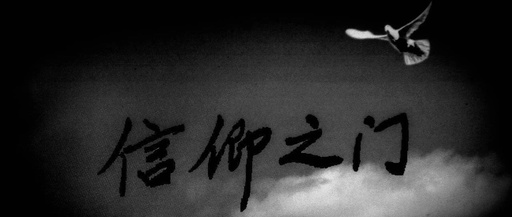 信仰之门